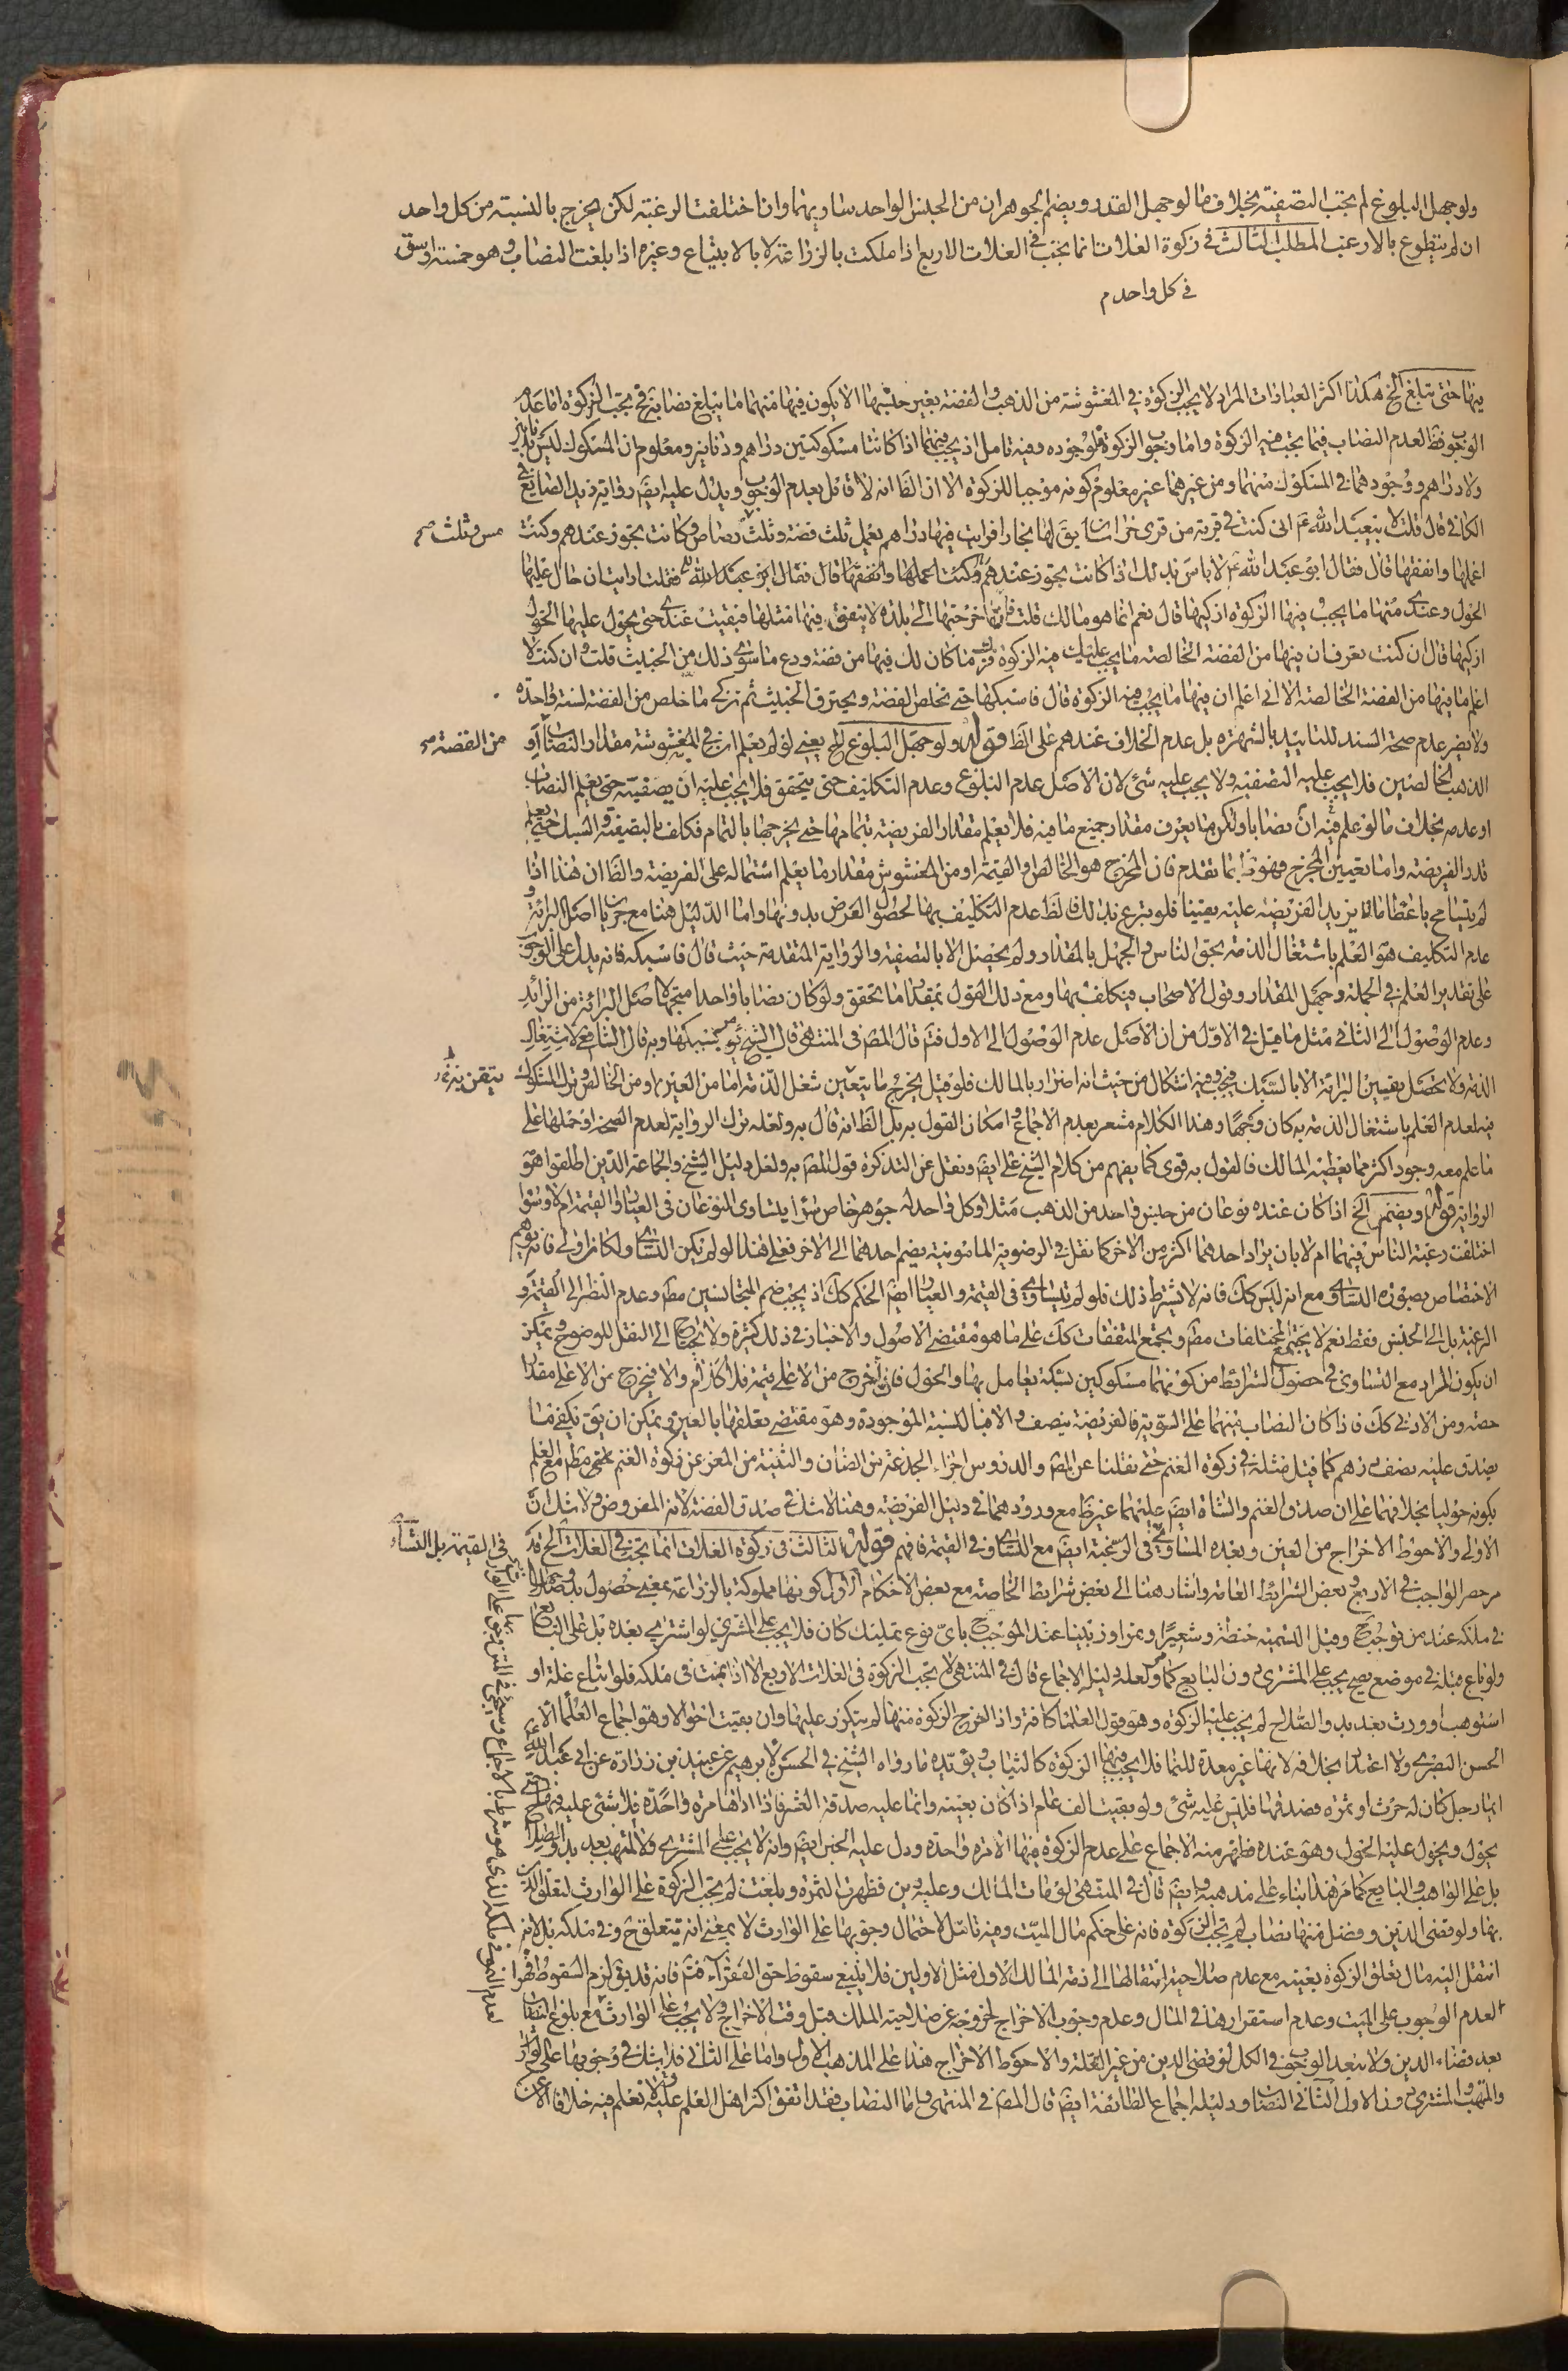 ولو جهل البلوغ لم يجب التصفية بخلاف ما لو جهل القدر ويضم الجوهران من الجنس الواحد تساويهما وان اختلفت الرغبة لكن يخرج بالنسبة من كل واحد
ان لم يتطوع بالارغب المطلب الثالث في زكوة الغلات انما يجب في الغلات الاربع اذا ملكت بالزراعة لا بالابتياع وغيره اذا بلغت النصاب وهو خمسة اوسق
في كل واحد م
منها حتى تبلغ الخ هكذا اكثر العبارات المراد لا يجب الزكوة في المغشوشة من الذهب والفضة بغير جنسها الا ان يكون فيها منهما ما يبلغ نصابا فح يجب الزكوة اما عدم
الوجوب فظ لعدم النصاب فيما يجب فيه الزكوة واما وجوب الزكوة فلوجوده وفيه تامل اذ يجب فيهما اذا كانتا مسكوكتين دراهم ودنانير ومعلوم ان المسكوك ليس بدنانير
ولا دراهم ووجودهما في المسكوك منهما ومن غيرهما غير معلوم كونه موجبا للزكوة الا ان الظ انه لا قائل بعدم الوجوب ويدل عليه ايضَ رواية زيد الصايغ في
الكافي قال قلت لابي عبد الله ع اني كنت في قرية من قرى خراسان يقَ لها بخارا فرايت فيها دراهم يعمل ثلث فضة وثلث رصاص وكانت تجوز عندهم وكنت
مس وثلث صح
اعملها وانفقها قال فقال ابو عبد الله ع لا باس بذلك اذا كانت تجوز عندهم وكنت اعملها وانفقها قال فقال ابو عبد الله ع فقلت ارايت ان حال عليها
الحول وعندي منها ما يجب فيها الزكوة ازكيها قال نعم انما هو مالك قلت فان اخرجتها الى بلدة لا ينفق فيها مثلها فبقيت عندي حتى يحول عليها الحول
ازكيها قال ان كنت تعرف ان فيها من الفضة الخالصة ما يجب عليك فيه الزكوة فزك ما كان لك فيها من فضة ودع ما سوى ذلك من الخبيث قلت وان كنت لا
اعلم ما فيها من الفضة الخالصة الا اني اعلم ان فيها ما يجب فيه الزكوة قال فاسبكها حتى تخلص الفضة ويحترق الخبيث ثم تزكي ما خلص من الفضة لسنة واحدة
ولا يضر عدم صحة السند للتاييد بالشهرة بل عدم الخلاف عندهم على الظ قوله ولو جهل البلوغ الخ يعني لو لم يعلم ان في المغشوشة مقدار النصاب او
من الفضة صح
الذهب الخالصين فلا يجب عليه التصفية ولا يجب عليه شئ لان الاصل عدم البلوغ وعدم التكليف حتى يتحقق فلا يجب عليه ان يصفيه حتى يعلم النصاب
او عدمه بخلاف ما لو علم فيه ان نصابا ولكن ما يعرف مقدار جميع ما فيه فلا يعلم مقدار الفريضة بتمامها حتى يخرجها بالتمام فكلف بالتصفية والسبك حتى يعلم
قدر الفريضة واما تعيين المخرج فهو بما تقدم فان المخرج هو الخالص والقيمة او من المغشوش مقدار ما يعلم اشتماله على الفريضة والظ ان هذا اذا
لم يتسامح باعطاء ما يزيد الفريضة عليه يقينا فلو تبرع بذلك فالظ عدم التكليف بها لحصول الغرض بدونها واما الدليل هنا مع جريان اصل البرائة و
عدم التكليف هو العلم باشتغال الذمة بحق الناس والجهل بالمقدار ولم يحصل الا بالتصفية والرواية المتقدمة حيث قال فاسبكه فانه يدل على الوجوب
على تقدير العلم في الجملة وجهل المقدار وقول الاصحاب فيكلف بها ومع ذلك القول بمقدار ما تحقق ولو كان نصابا واحدا متجه لاصل البرائة من الزائد
وعدم الوصول الى الثاني مثل ما قيل في الاول من ان الاصل عدم الوصول الى الاول فتم قال المصَ في المنتهى قال الشيخ يؤمر بسبكها وبه قال الشافعي لاشتغال
الذمة ولا يحصل يقين البرائة الا بالسبك فيجب وفيه اشكال من حيث انه اضرار بالمالك فلو قيل يخرج ما يتعين شغل الذمة اما من العين او من الخالص وترك المشكوك
يتقن يزئه
فيه لعدم العلم باشتغال الذمة به كان وجها وهذا الكلام مشعر بعدم الاجماع وامكان القول به بل الظ انه قال به ولعله ترك الرواية لعدم الصحة او حملها على
ما علم معه وجود اكثر مما يعطيه المالك فالقول به قوي كما يفهم من كلام الشيخ علي ايضَ ونقل عن التذكرة قول المصَ به ولعل دليل الشيخ والجماعة الذين اطلقوا هو
الرواية قوله ويضم الخ اذا كان عنده نوعان من جنس واحد من الذهب مثلا وكل واحد له جوهر خاص سواء يتساوى النوعان في العيار والقيمة ام لا وسواء
اختلفت رغبة الناس فيهما ام لا بان يراد احدهما اكثر من الاخر كما نقل في الرضوية المامونية يضم احدهما الى الاخر فعلى هذا لو لم تكن التساوي لكان اولى فانه توهم
الاختصاص بصورة التساوي مع انه ليس كك فانه لا يشترط ذلك فلو لم يتساوى في القيمة والعيار ايضَ الحكم كك اذ يجب ضم المتجانسين مطَ وعدم النظر الى القيمة و
الرغبة بل الى الجنس فقط نعم لا يجتمع المختلفات مطَ ويجتمع المتفقات كك على ما هو مقتضى الاصول والاخبار في ذلك كثيرة ولا تحتاج الى النقل للوضوح ويمكن
ان يكون المراد مع التساوي في حصول الشرائط من كونهما مسكوكين بسكة يعامل بها والحول فان اخرج من الاعلى بتمه فلا كلام والا فيخرج من الاعلى مقدار
حصته ومن الادنى كك فاذا كان النصاب منهما على السوية فالفريضة ينصف والا فبالنسبة الموجودة وهو مقتضى تعلقها بالعين ويمكن ان يقَ يكفي ما
يصدق عليه نصف درهم كما قيل مثله في زكوة الغنم حتى نقلنا عن المصَ والدروس اجزاء الجذعة من الضان والثنية من المعز عن زكوة الغنم
بكونه حوليا بخلافهما على ان صدق الغنم والشاة ايضَ عليهما غير ظ مع ورودهما في دليل الفريضة وهنا لا شك في صدق الفضة لانه المفروض ولا شك ان
الاولى والاحوط الاخراج من العين وبعده المساوي في الرغبة ايضَ مع التساوي في القيمة فافهم قوله الثالث في زكوة الغلات انما تجب في الغلات الخ قد
في القيمة بل التساوي
مر حصر الواجب في الاربع وبعض الشرائط العامة واشار هنا الى بعض شرايط الخاصة مع بعض الاحكام الاول كونها مملوكة بالزراعة بمعنى حصول بدو صلاحها
في ملكه عند من يوجب ح وقبل التسمية حنطة وشعيرا وتمرا وزبيبا عند الموجب ح باي نوع تملك كان فلا يجب على المشتري لو اشترى بعده بل على البايع
ولو باع قبله في موضع يصح يجب على المشتري دون البايع كما مر ولعله دليل الاجماع قال في المنتهى لا تجب الزكوة في الغلات الاربع الا اذا نمت في ملكه فلو ابتاع غلة او
استوهب او ورث بعد بدو الصلاح لم يجب عليه الزكوة وهو قول العلماء كافة واذا اخرج الزكوة منها لم يتكرر عليها وان بقيت احوالا وهو اجماع العلماء الا
الحسن البصري ولا اعتداد بخلافه لانها غير معدة للنماء فلا يجب فيها الزكوة كالثياب ويؤيده ما رواه الشيخ في الحسن لابرهيم عن عبيد بن زرارة عن ابي عبد الله ع
ايما رجل كان له حرث او ثمرة فصدقها فليس عليه شئ ولو بقيت الف عام اذا كان بعينه وانما عليه صدقة العشر فاذا اداها مرة واحدة فلا شئ عليه فيها حتى
يحول ويحول عليه الحول وهو عنده فظهر منه الاجماع على عدم الزكوة فيها الا مرة واحدة ودل عليه الخبر ايضَ وانه لا يجب على المشتري ولا المتهب بعد بدو الصلاح
بل على الواهب والبايع كما مر هذا بناء على مذهبه وايضَ قال في المنتهى لو مات المالك وعليه دين فظهرت الثمرة وبلغت لم تجب الزكوة على الوارث لتعلق الدين
بها ولو قضى الدين وفضل منها نصاب لم تجب الزكوة فانه على حكم مال الميت وفيه تامل لاحتمال وجوبها على الوارث لا بمعنى انه يتعلق ح وفي ملكه بل لانه
انتقل اليه مال تعلق الزكوة بعينه مع عدم صلاحية انتقالها الى ذمة المالك الاول مثل الاولين فلا ينبغي سقوط حق الفقراء فتم فانه قد يقَ لزم السقوط قهرا
لعدم الوجوب على الميت وعدم استقرارها في المال وعدم وجوب الاخراج لخروجه عن صلاحية الملك قبل وقت الاخراج ولا يجب على الوارث مع بلوغ النصاب
بعد قضاء الدين ولا يبعد الوجوب في الكل لو قضى الدين من غير الغلة والاحوط الاخراج هذا على المذهب الاول واما على الثاني فلا شك في وجوبها على الوارث
والمتهب والمشتري دون الاول الثاني النصاب ودليله اجماع الطائفة ايضَ قال المصَ في المنتهى واما النصاب فقد اتفق اكثر اهل العلم عليه لا نعلم فيه خلافا الا عن